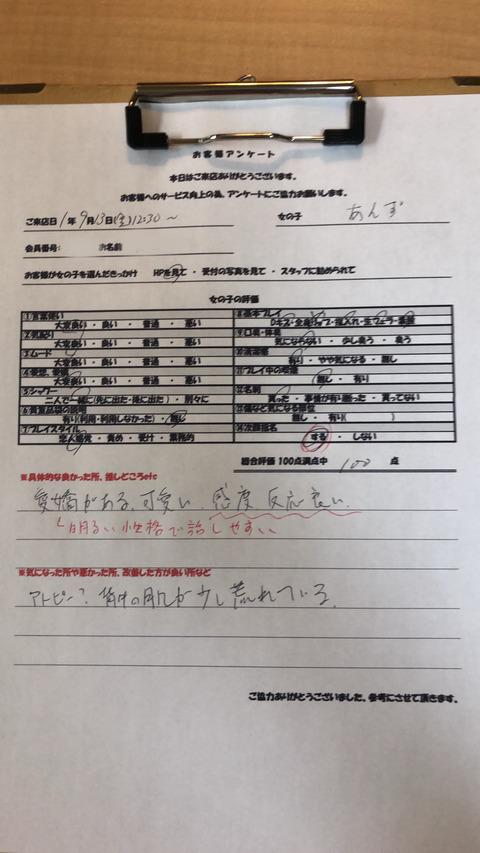 お客様アンケート
本日はご来店ありがとうございます。
お客様へのサービス向上の為、アンケートにご協力お願いします。
ご来店日 1年 9月13日(金)12:30 ~ 女の子 あんず
会員番号: お名前
お客様が女の子を選んだきっかけ HPを見て ・ 受付の写真を見て ・ スタッフに勧められて
女の子の評価
①言葉使い ⑧基本プレイ
大変良い ・ 良い ・ 普通 ・ 悪い Dキス・全身リップ・指入れ・生フェラ・素股
②気配り ⑨口臭・体臭
大変良い ・ 良い ・ 普通 ・ 悪い 気にならない ・ 少し臭う ・ 臭う
③ムード ⑩清潔感
大変良い ・ 良い ・ 普通 ・ 悪い 有り ・ やや気になる ・ 無し
④愛想、愛嬌 ⑪プレイ中の喫煙
大変良い ・ 良い ・ 普通 ・ 悪い 無し ・ 有り
⑤シャワー ⑫名刺
二人で一緒に(先に出た・後に出た) ・ 別々に 貰った ・ 事情が有り断った ・ 貰ってない
⑥貴重品袋の説明 ⑬傷など気になる部位
有り(利用・利用しなかった) ・ 無し 無し ・ 有り( )
⑦プレイスタイル ⑭次回指名
恋人感覚 ・ 責め ・ 受け ・ 業務的 する ・ しない
総合評価 100点満点中 100 点
※具体的な良かった所、推しどころetc
愛嬌がある、可愛い、感度 反応良い、
明るい性格で話しやすい
※気になった所や悪かった所、改善した方が良い所など
アトピー? 背中の肌が少し荒れている。
ご協力ありがとうございました。参考にさせて頂きます。